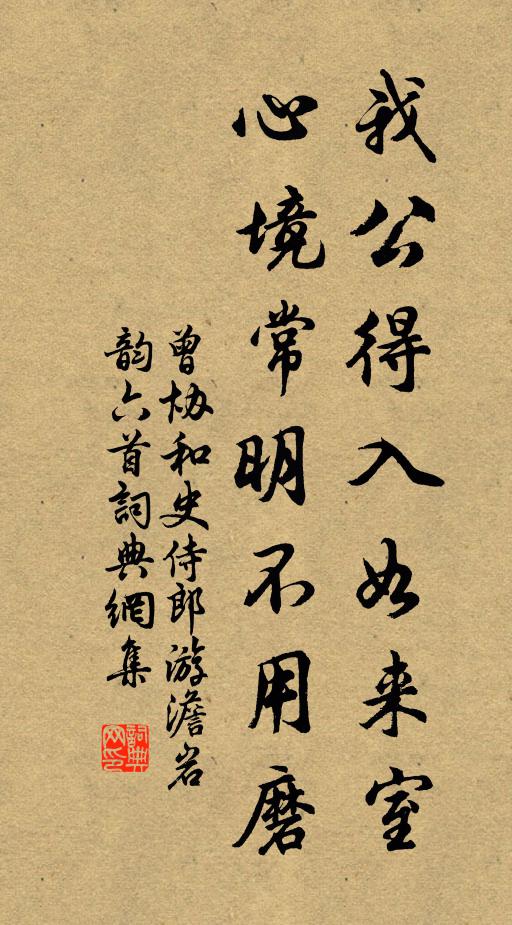 我公得入如来室
心境常明不用磨
曾协和史侍郎游澹岩
韵六首詞典網集
詞典网印